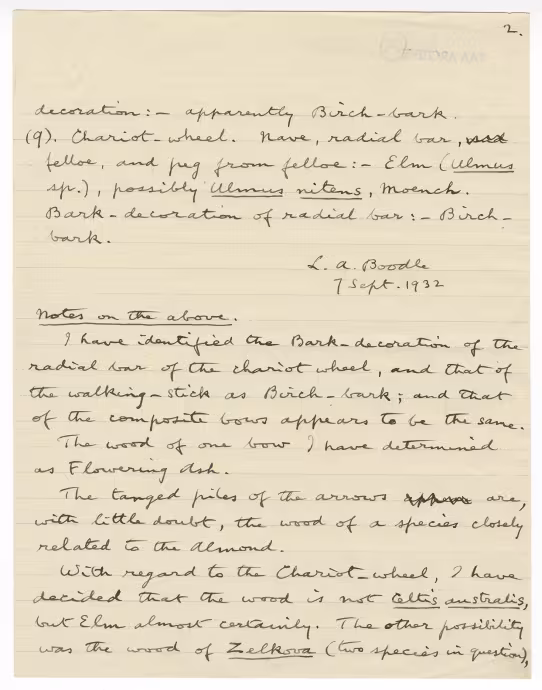 2.
decoration:- apparently Birch-bark.
(9). Chariot-wheel. Nave, radial bar,
felloe, and peg from felloe:- Elm (Ulmus
sp.), possibly Ulmus nitens, Moench.
Bark-decoration of radial bar:- Birch-
bark.
L. A. Boodle
7 Sept. 1932
Notes on the above.
I have identified the Bark-decoration of the
radial bar of the chariot wheel, and that of
the walking-stick as Birch-bark; and that
of the composite bows appears to be the same.
The wood of one bow I have determined
as Flowering Ash.
The tanged piles of the arrows are,
with little doubt, the wood of a species closely
related to the Almond.
With regard to the Chariot-wheel, I have
decided that the wood is not Celtis australis,
but Elm almost certainly. The other possibility
was the wood of Zelkova (two species in question),